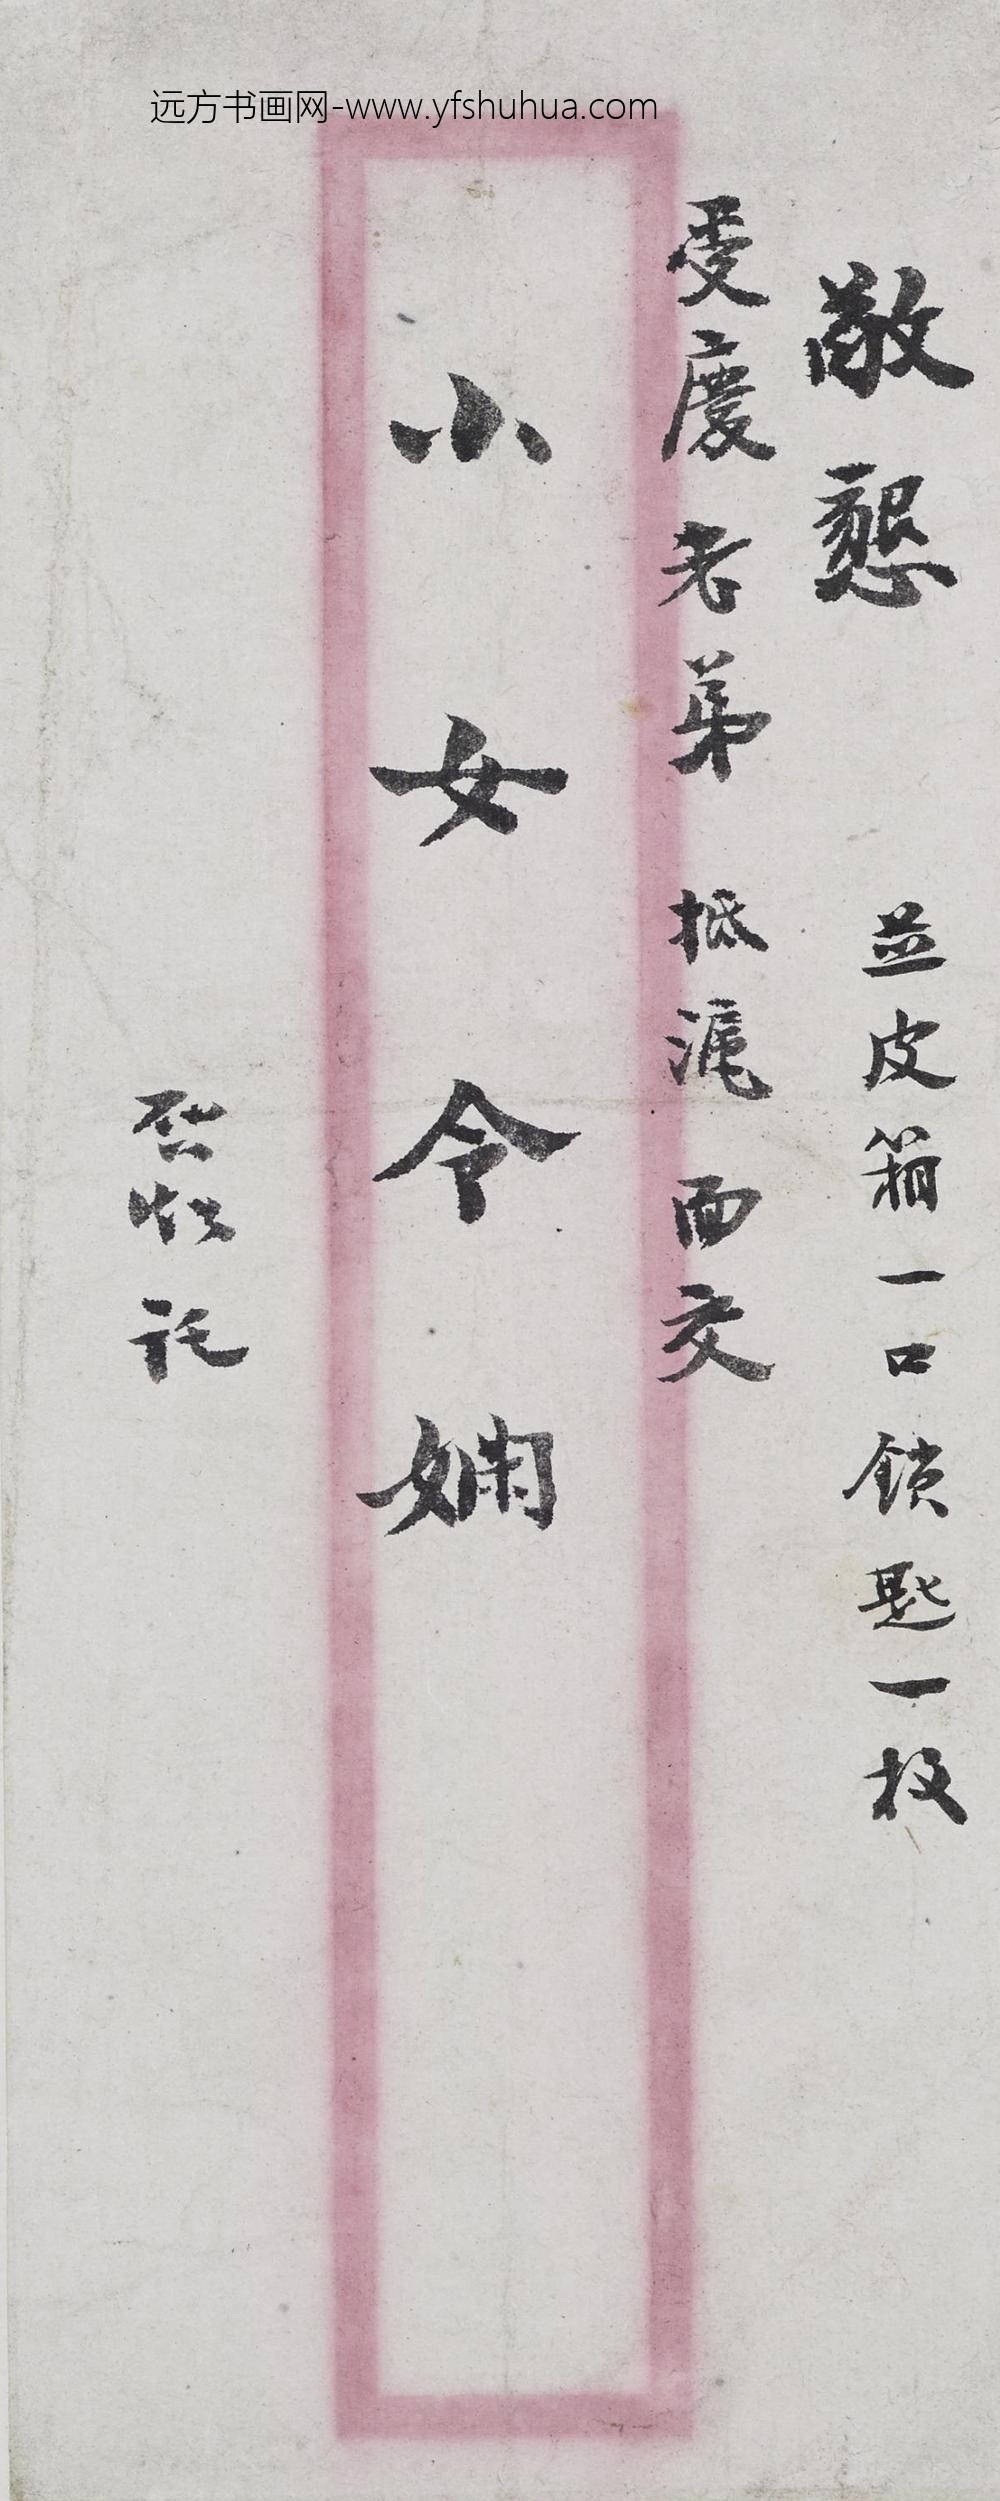 远方书画网-www.yfshuhua.com
敬懇
並皮箱一口鎖匙一枚
受慶老弟 抵滬面交
小女令嫻
託